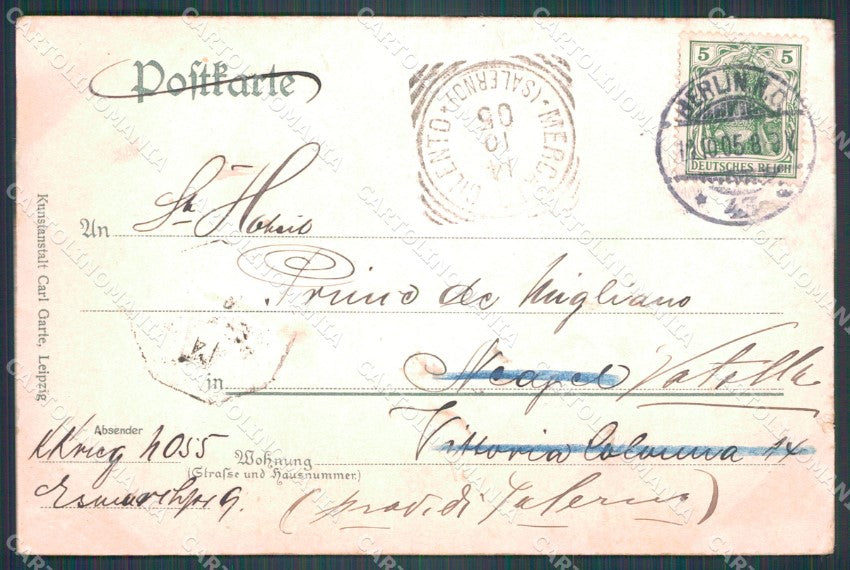 Postkarte
5 5
DEUTSCHES REICH
BERLIN N.O.
12.10.05.8-9V
MERC CILENTO * (SALERNO) *
14
10
05
An St. Hoheit
Prince de Migliano
in Neapel Vatolla
Vittoria Colonna 14
(prov. di Salerno)
Absender
4055
Wohnung
(Straße und Hausnummer.)
9.
Kunstanstalt Carl Garte, Leipzig
CARTOLINOMANIA